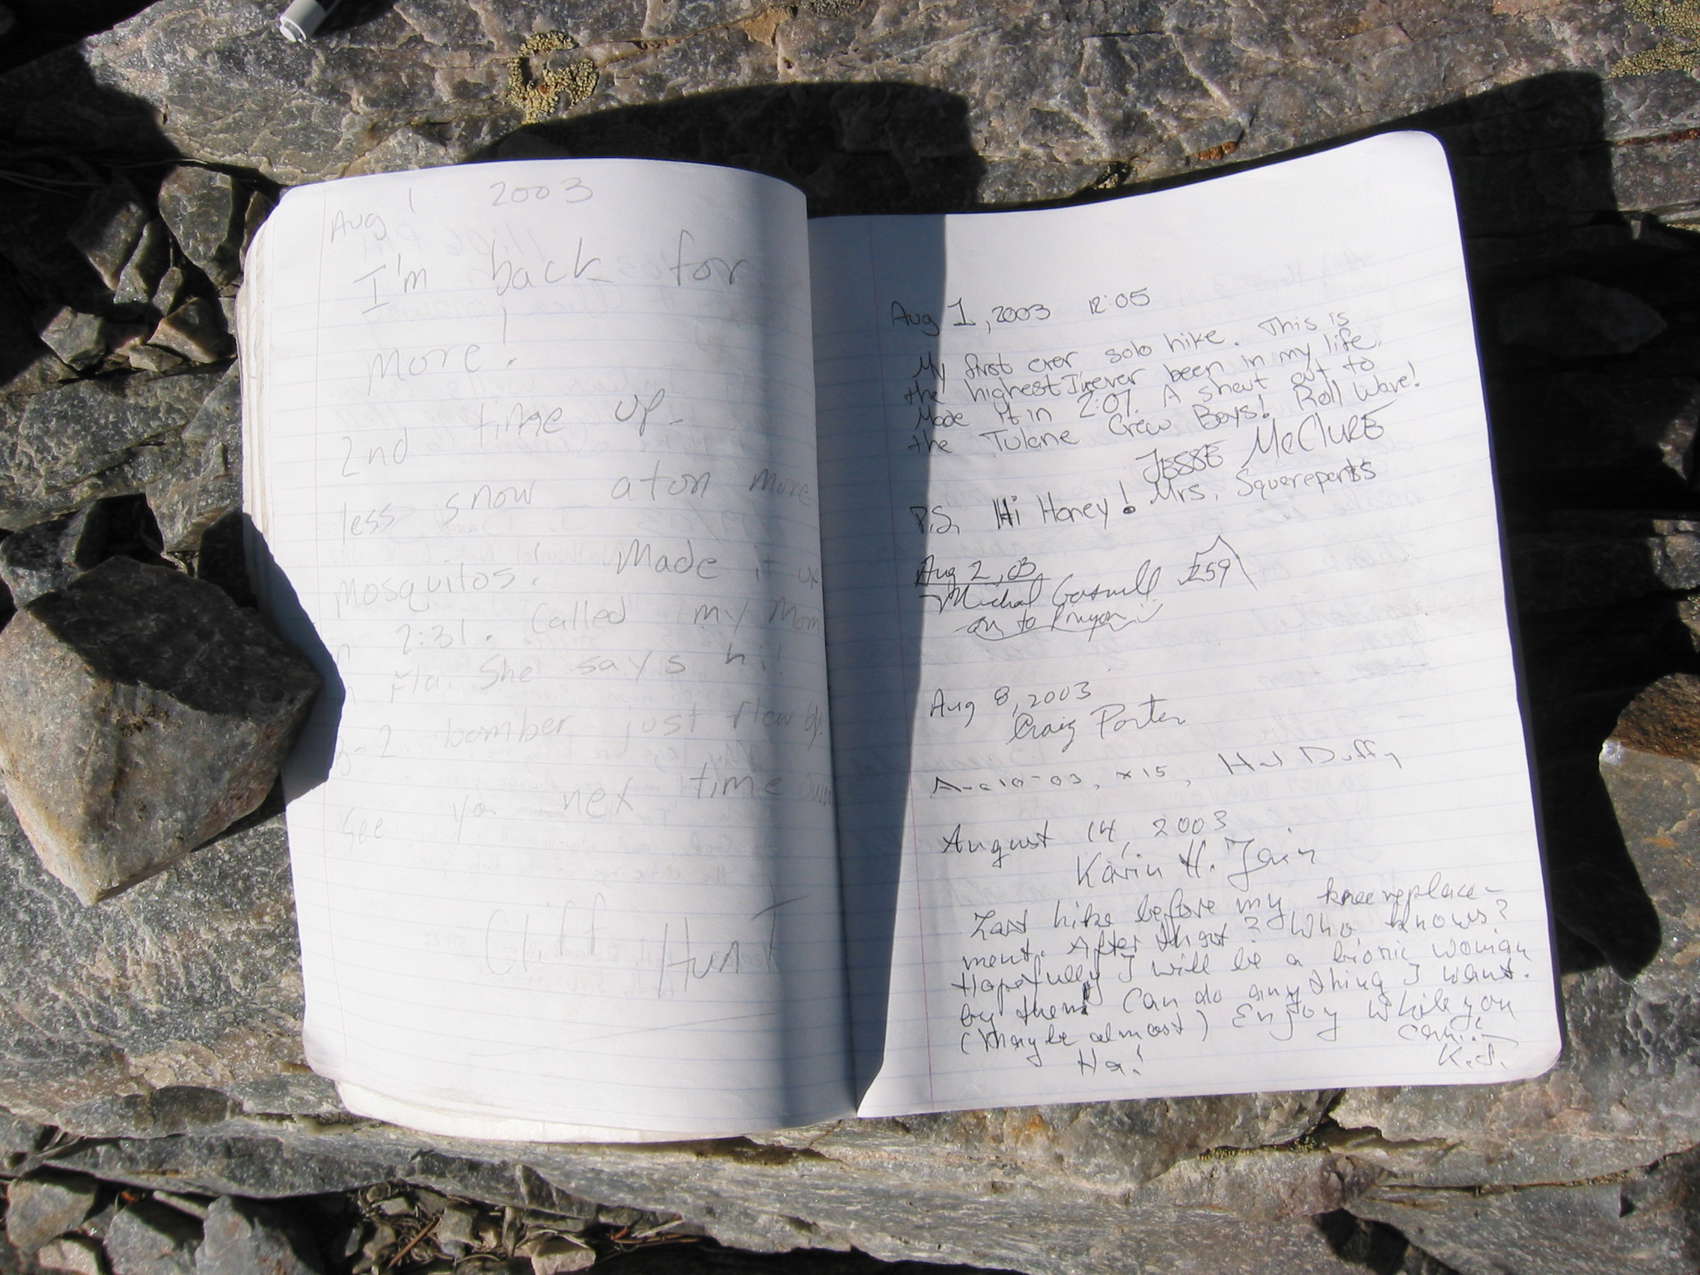 Aug 1 2003
I'm back for
more!
2nd time up.
less snow aton more
mosquitos! Made it up
n 2:31. Called my Mom
n Fla. She says hi!
B-2 bomber just flew by.
See ya nex time
Cliff Hunt
Aug 1, 2003 12:05
My first ever solo hike. This is
the highest I've ever been in my life.
Made it in 2:07. A shout out to
the Tulane Crew Boys! Roll Wave!
JESSE McClURE
P.S. Hi Honey! Mrs. Squarepants
Aug 2, 03
259
on to
Aug 8, 2003
Craig Porter
10-03, x15, Hal Duffy
August 14, 2003
Karin H.
Last hike before my kneereplace-
ment. After that? Who knows?
Hopefully I will be a bionic woman
by then! Can do anything I want.
(Maybe almost) Enjoy while you
can!
Ha! K.J.